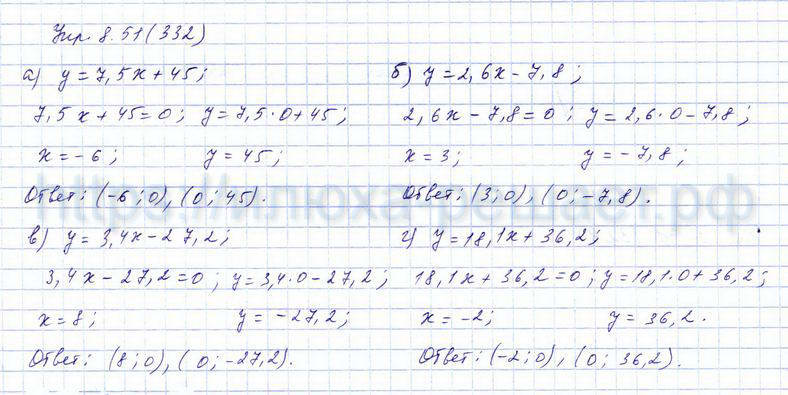 Упр 8.51(332)
а) y=7,5x+45;
7,5x+45=0; y=7,5·0+45;
x=-6; y=45;
Ответ: (-6;0), (0;45).
б) y=2,6x-7,8;
2,6x-7,8=0; y=2,6·0-7,8;
x=3; y=-7,8;
Ответ: (3;0), (0;-7,8).
в) y=3,4x-27,2;
3,4x-27,2=0; y=3,4·0-27,2;
x=8; y=-27,2;
Ответ: (8;0), (0;-27,2).
г) y=18,1x+36,2;
18,1x+36,2=0; y=18,1·0+36,2;
x=-2; y=36,2.
Ответ: (-2;0), (0;36,2).
https://илюхарешает.рф